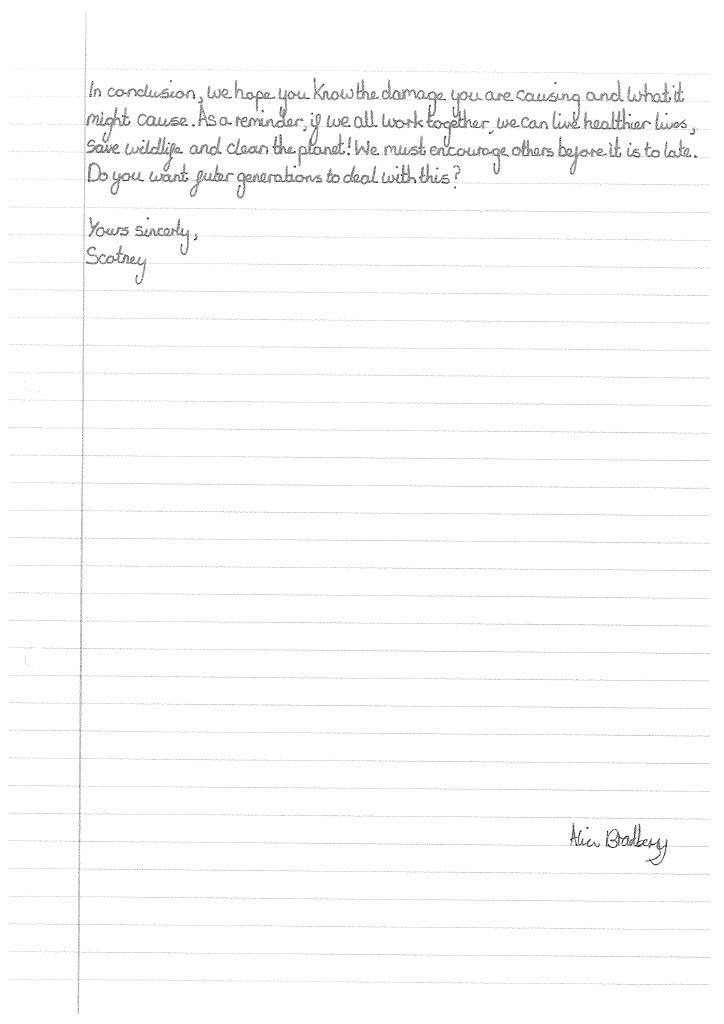 In conclusion, we hope you know the damage you are causing and what it
might cause. As a reminder, if we all work together, we can live healthier lives,
save wildlife and clean the planet! We must encourage others before it is to late.
Do you want futer generations to deal with this?
Yours sincerly,
Scotney
Bradbery